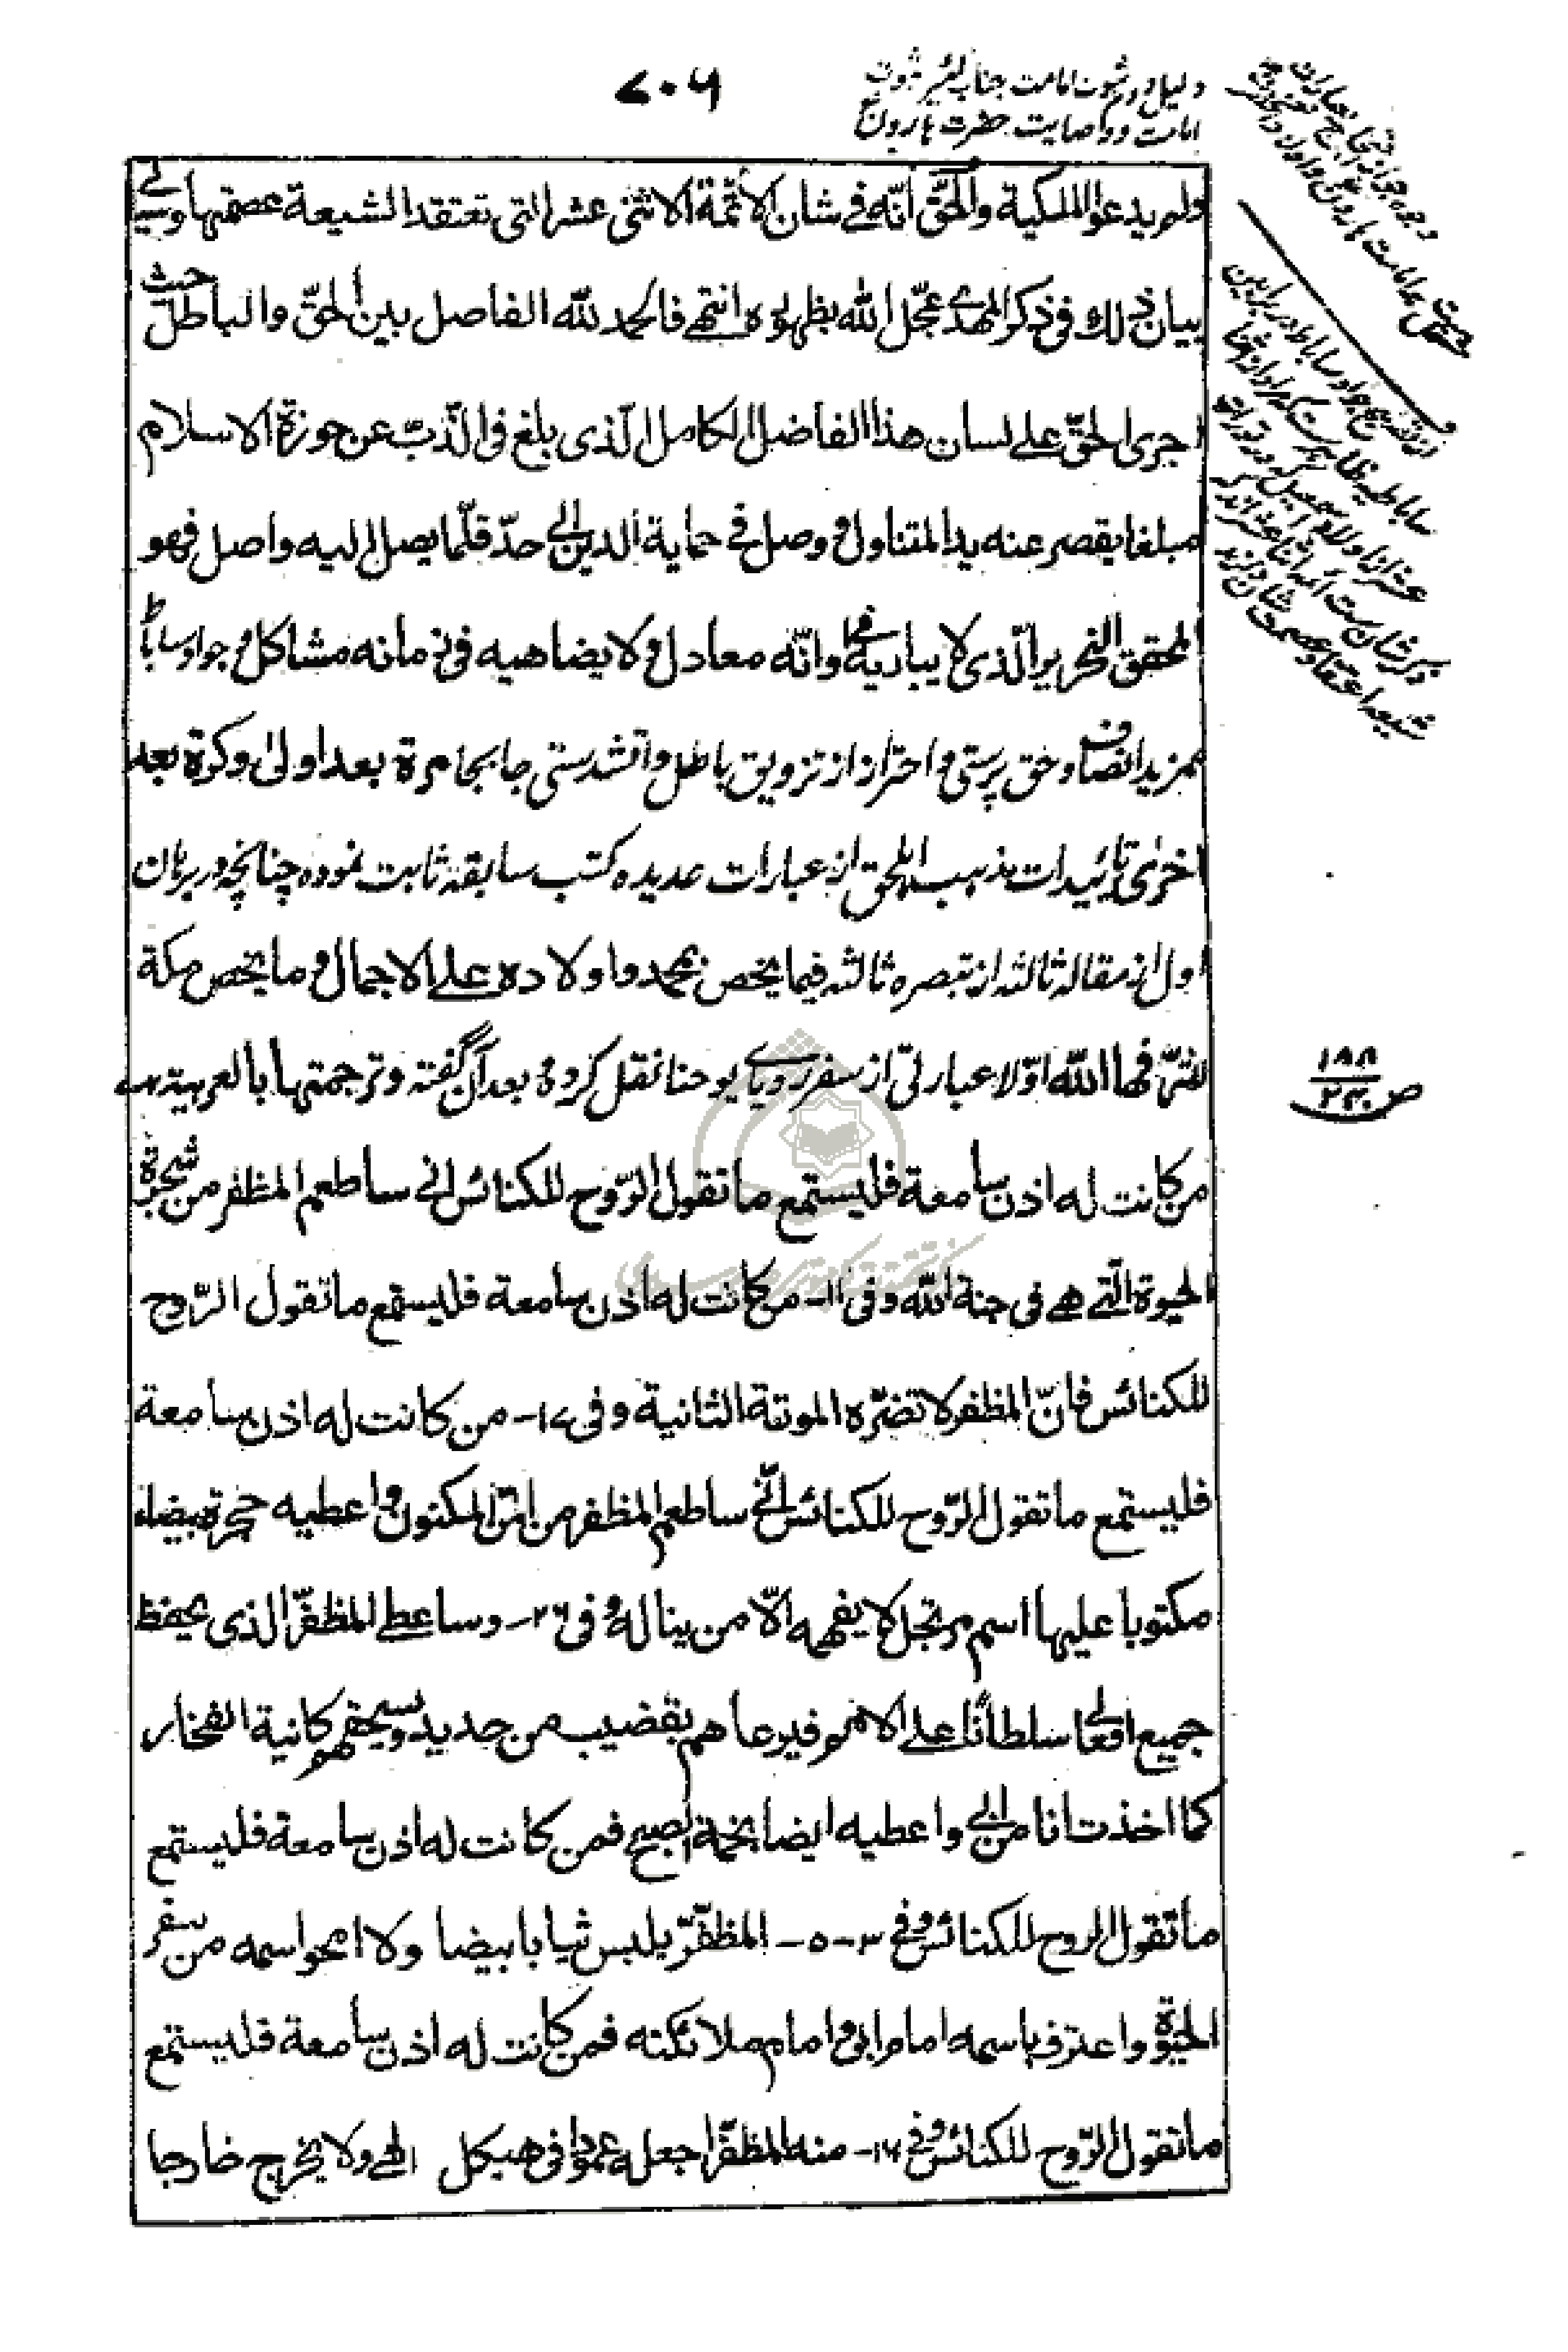 ۷۰۶
دلیل دوم ثبوت امامت جناب امیر بثبوت
امامت و وصایت حضرت هارون ع
ولم یدعوا الملکیة والحق انّه فی شان الأئمّة الاثنی عشر التی تعتقد الشیعة عصمتها وسیاتی
بیان ذلك فی ذکر المهدی عجّل الله بظهوره انتهی فالحمد لله الفاصل بین الحقّ والباطل حیث
اجری الحقّ علی لسان هذا الفاضل الکامل الّذی بلغ فی الذّبّ عن حوزة الاسلام
مبلغا یقصر عنه ید المتناول و وصل فی حمایة الدین الی حدّ قلّما یصل الیه واصل فهو
المحقق النحریر الّذی لا یباریه فی اوانه معادل ولا یضاهیه فی زمانه مشاکل و جواد ساباط
بمزید انصاف وحق پرستی و احتراز از تزویق باطل و جابجا مرة بعد اولی وکرة بعد
اخری تائیدات مذهب اهل حق از عبارات عدیده کتب سابقه ثابت نموده چنانچه در برهان
اول از مقاله ثالثه از تبصره ثالثه فیما یخص بمحمد واولاده علی الاجمال وما یخص مکة
شرّفها الله اوّلا عبارتی از سفر رویای یوحنا نقل کرده و بعد آن گفته وترجمتها بالعربیة
من کانت له اذن سامعة فلیستمع ما تقول الرّوح للکنائس انی ساطعم المظفر من شجرة
الحیوة الّتی هی فی جنة الله وفی ۱۱- من کانت له اذن سامعة فلیستمع ما تقول الرّوح
للکنائس فانّ المظفر لا تضرّه الموتة الثانیة وفی ۱۷- من کانت له اذن سامعة
فلیستمع ما تقول الرّوح للکنائس انّی ساطعم المظفر من المنّ المکنون واعطیه حجرة بیضاء
مکتوبا علیها اسم مرتجل لا یفهمه الّا من یناله وفی ۲۶- وساعطی المظفّر الذی یحفظ
جمیع افعالی سلطانًا علی الامم فیرعاهم بقضیب من جدید ویسحقهم کانیة الفخار
کما اخذت انا من ابی واعطیه ایضا نجمة الصبح فمن کانت له اذن سامعة فلیستمع
ما تقول الروح للکنائس وفی ۳-۵- المظفّر یلبس ثیابا بیضا ولا امحو اسمه من سفر
الحیوة واعترف باسمه امام ابی وامام ملائکته فمن کانت له اذن سامعة فلیستمع
ما تقول الرّوح للکنائس وفی ۱۲- منه المظفّر اجعله عمودا فی هیکل الهی ولا یخرج خارجا
ص ۱۸۸